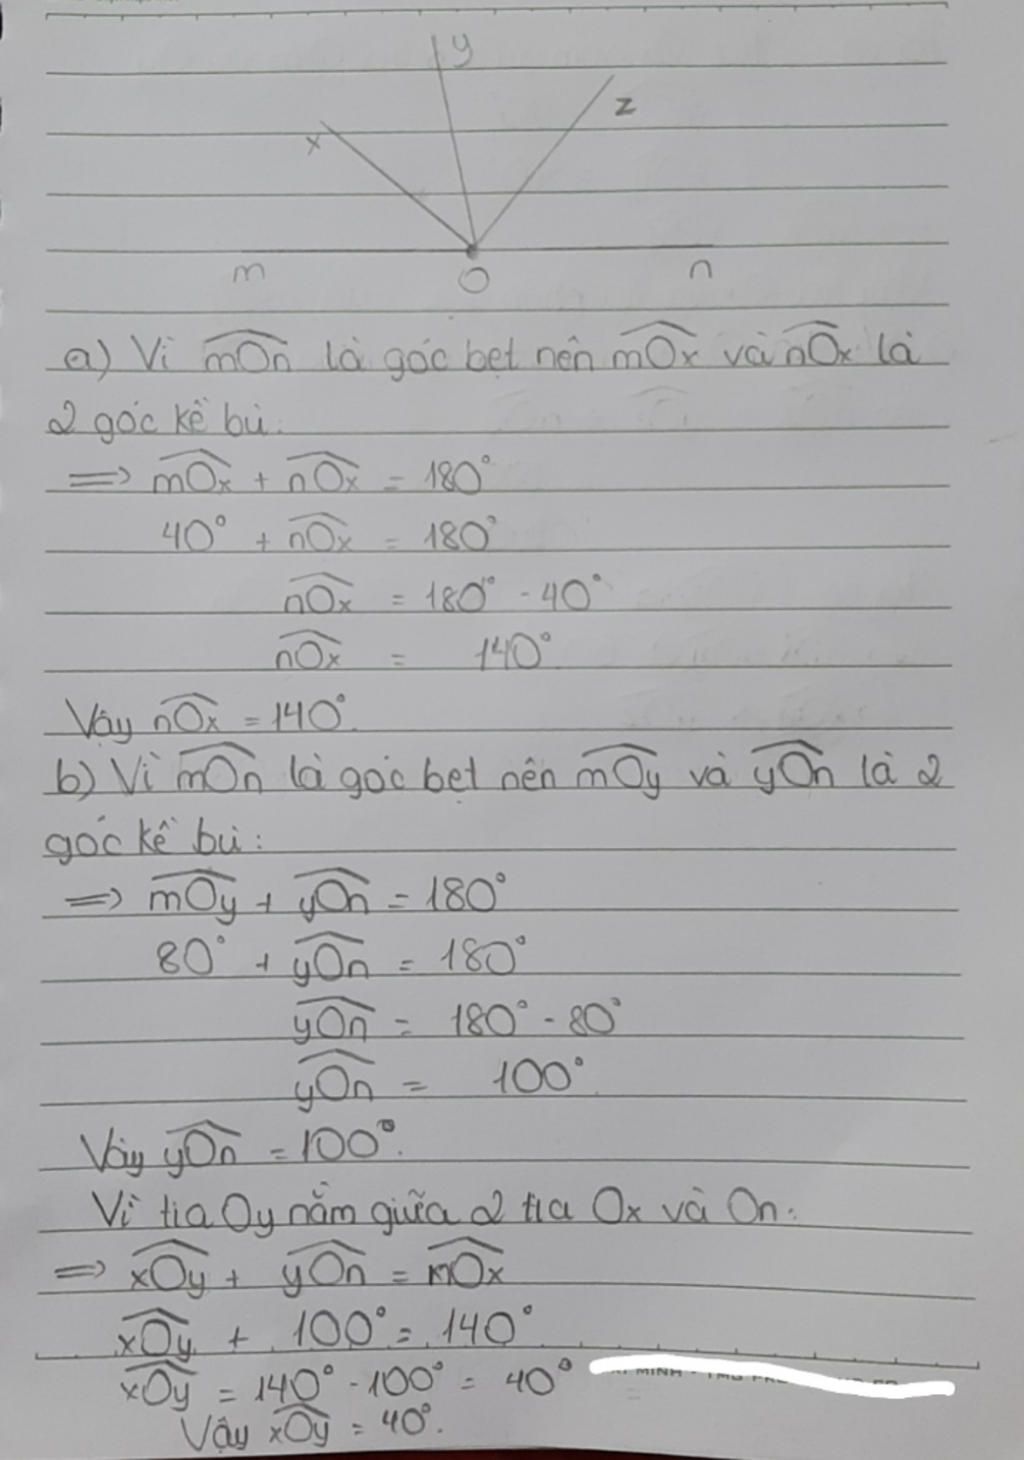 y
z
x
m O n
a) Vì mOn là góc bẹt nên mOx và nOx là
2 góc kề bù:
=> mOx + nOx = 180°
40° + nOx = 180°
nOx = 180° - 40°
nOx = 140°
Vậy nOx = 140°.
b) Vì mOn là góc bẹt nên mOy và yOn là 2
góc kề bù:
=> mOy + yOn = 180°
80° + yOn = 180°
yOn = 180° - 80°
yOn = 100°
Vậy yOn = 100°.
Vì tia Oy nằm giữa 2 tia Ox và On:
=> xOy + yOn = nOx
xOy + 100° = 140°
xOy = 140° - 100° = 40°
Vậy xOy = 40°.